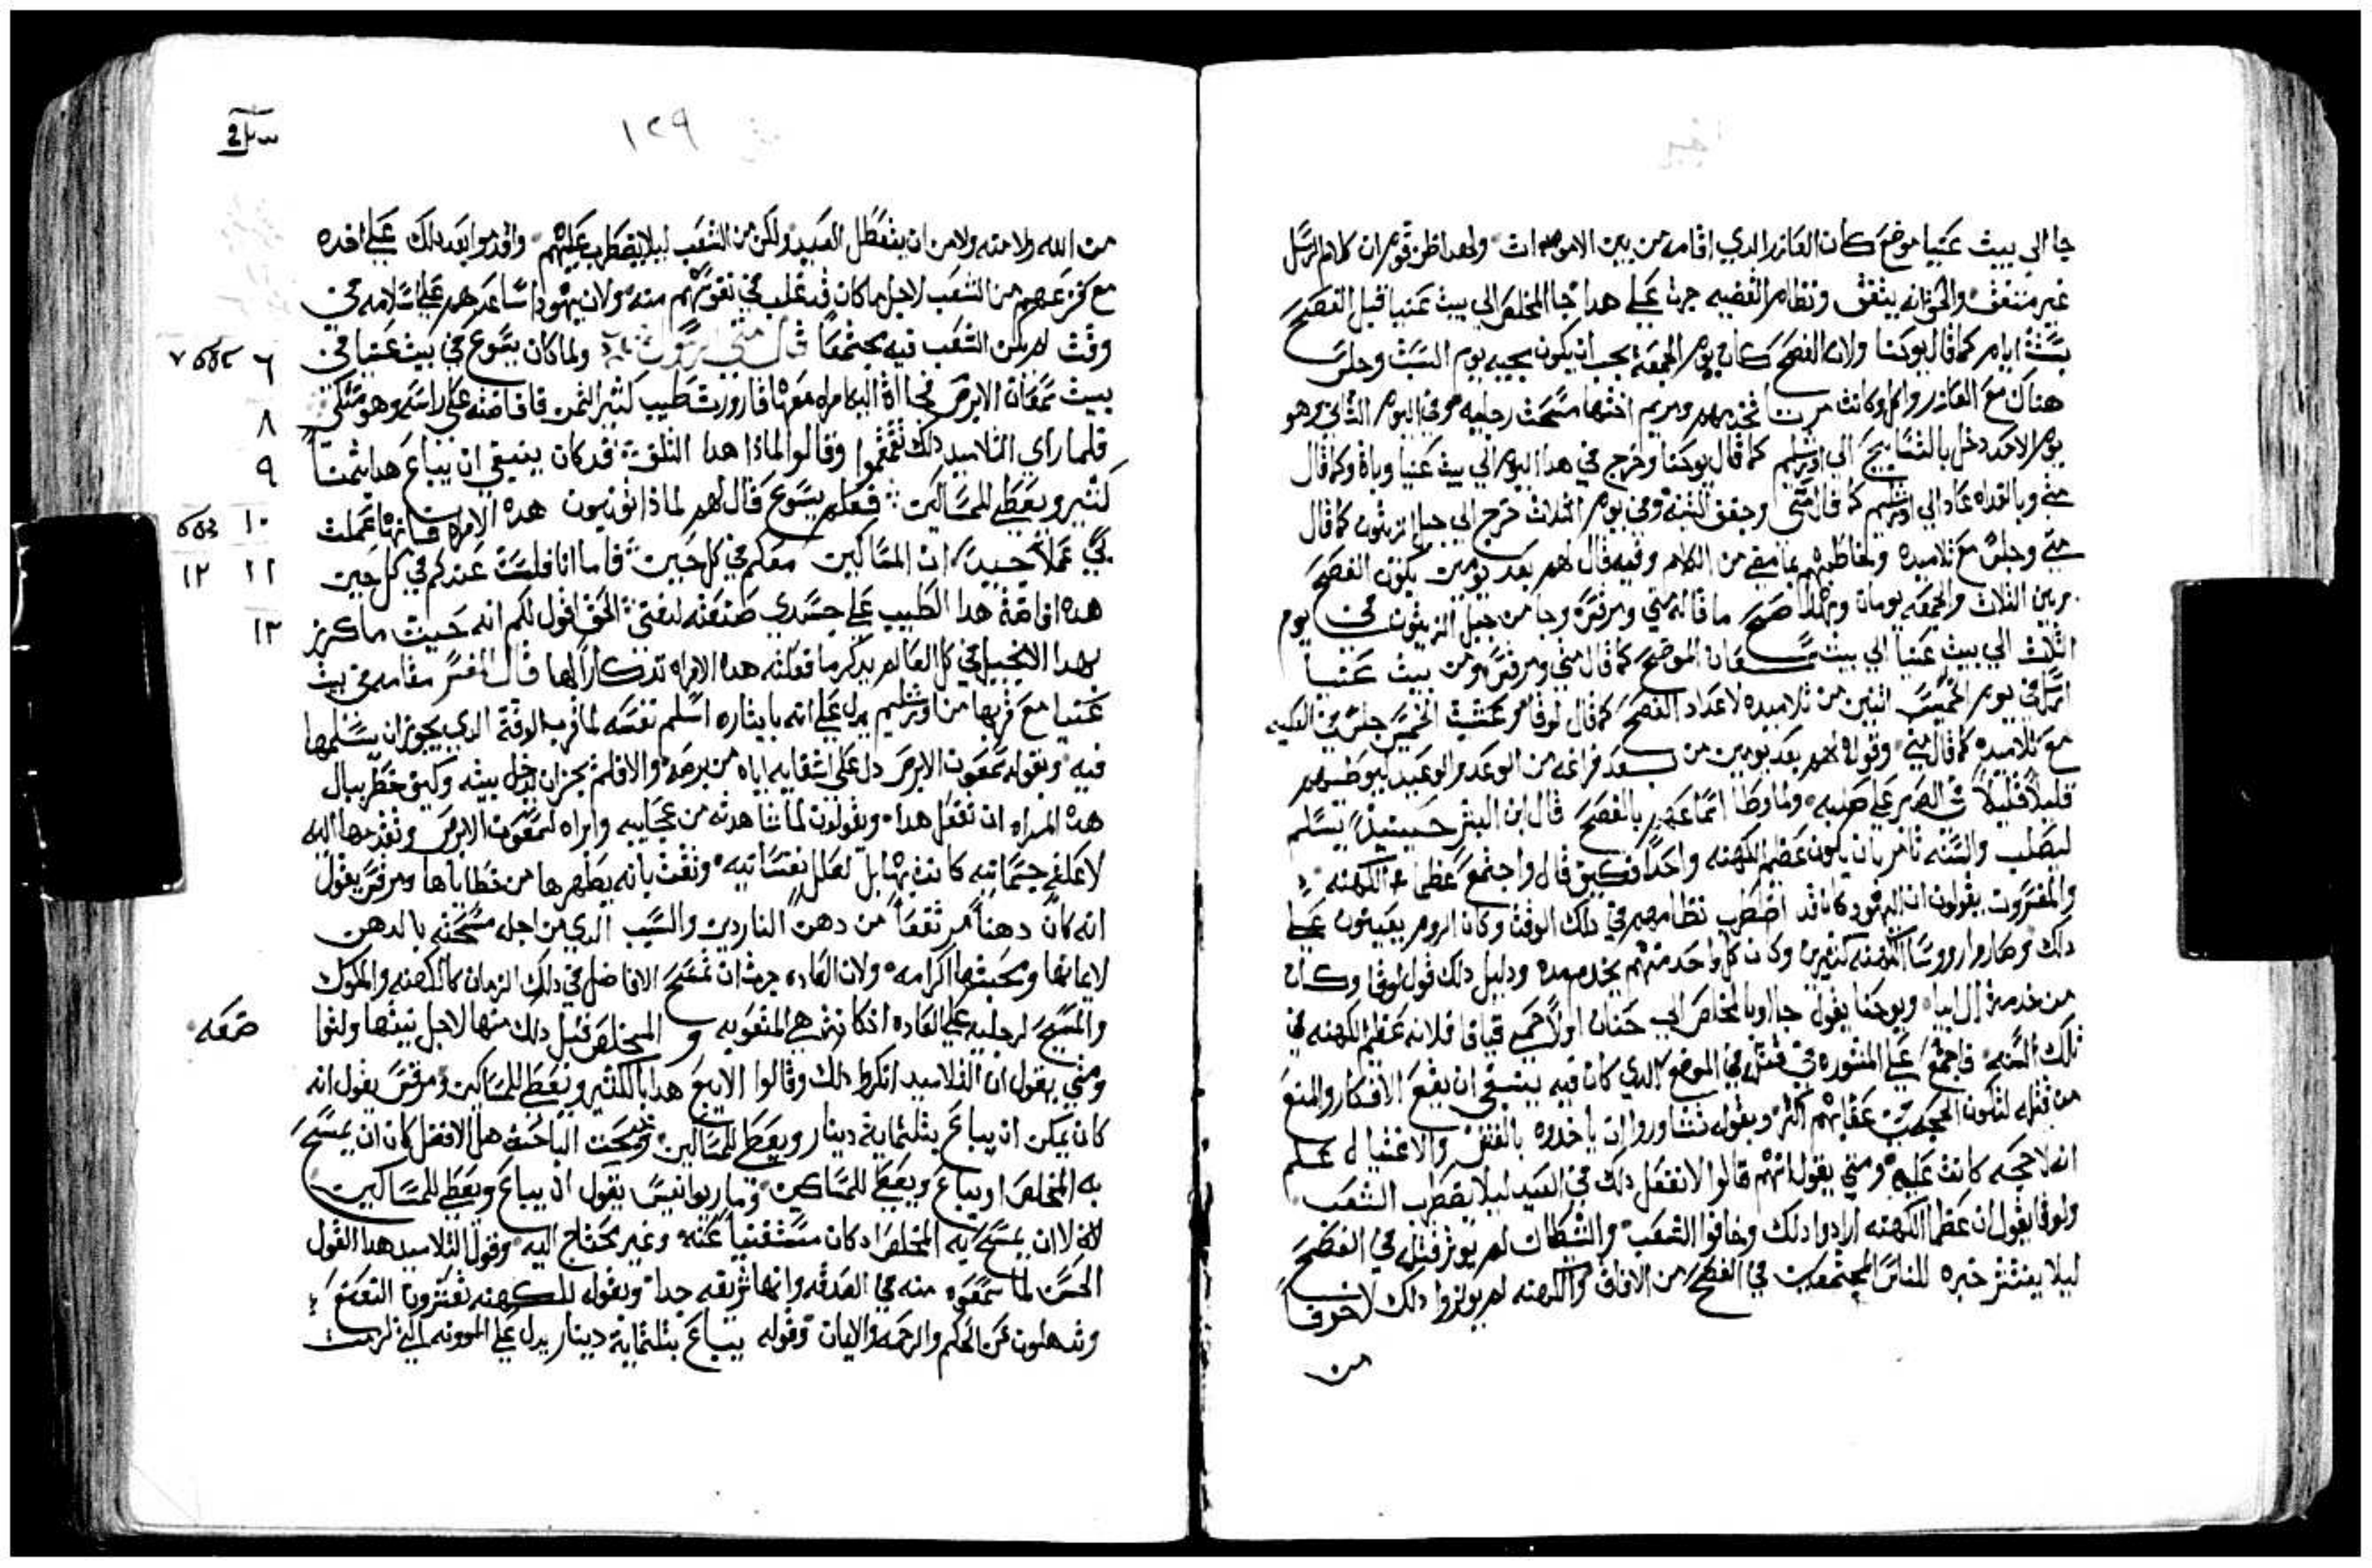 جا الي بيت عنيا موضع كان العازر الدي اقامه من بين الاموات ولهدا ظن قوم ان كلام الرسل
غير متفق والحق انه يتفق ونظام القضيه جرت علي هدا جا المخلص الي بيت عنيا قبل الفصح
بستة ايام كما قال يوحنا ولان الفصح كان يوم الجمعة يجب ان يكون مجيه يوم السبت وجلس
هناك مع العازر واكل وكانت مرتا تخدمهم ومريم اختها مسحت رجليه وفي اليوم التاني وهو
يوم الاحد دخل بالتسابيح الي اورشليم كما قال يوحنا وخرج في هدا اليوم الي بيت عنيا وباة وكما قال
متي وبالغداه عاد الي اورشليم كما قال متي وجفف التينه وفي يوم التلات خرج الي جبل الزيتون كما قال
متي وجلس مع تلاميده وخاطبهم بما مضي من الكلام وفيه قال لهم بعد يومين يكون الفصح
وبين التلات والجمعه يومان وبهدا صح ما قاله متي ومرقس وجا من جبل الزيتون في يوم
التلات الي بيت عنيا الي بيت سمعان الموضح كما قال متي ومرقس ومن بيت عنيا
ارسل في يوم الخميس اتنين من تلاميده لاعداد الفصح كما قال لوقا وعشية الخميس جلس في العليه
مع تلاميده كما قال متي وقوله لهم بعد يومين من بعد فراغه من الوعد والوعيد ليوطهم
قليلاً قليلاً في الصبر علي صلبه ولما وطا اسماعهم بالفصح قال ابن البشر حينيدٍ يسلم
ليصلب والسنه تامر بان يكون عظيم الكهنه واحداً فكيف قال واجتمع عظما الكهنه
والمفسروت يقولون ان اليهود كان قد اضطرب نظامهم في دلك الوقت وكان الروم يعينون علي
دلك وصاروا رووسا الكهنه كتيرين وكان كل واحد منهم يخدم مده ودليل دلك قول لوقا وكان
من خدمة ال ابيا ويوحنا يقول جااوا بالمخلص الي حنان اولاً حمي قيافا فلانه عظيم الكهنه في
تلك السنه فاجتمع علي المشوره في قتله في الموضع الدي كان فيه ينبغي ان يقع الافتكار والمنع
من قتله لتكون الحجة في عقابهم اكتر وبقوله تشاوروا ان ياخدوه بالغش والاغتيال علم
انه لا حجه كانت عليه ومتي يقول انهم قالوا لا نفعل دلك في العيد ليلا يضطرب الشعب
ولوقا يقول ان عظما الكهنه ارادوا دلك وخافوا الشعب والشيطان لم يوتر قتله في الفصح
ليلا ينتشر خبره للناس المجتمعين في الفصح من الافاق والكهنه لم يوتروا دلك لا خوفاً
من
١٢٩
من الله ولا منه ولا من ان يتعطل العيد ولكن من الشعب ليلا يضطرب عليهم واقدموا بعد دلك علي اخده
مع فزعهم من الشعب لاجل ما كان قد غلب في نفوسهم منه ولان يهودا ساعدهم علي اسلامه في
وقت لم يكن الشعب فيه مجتمعا قال متي الرسول ولما كان يسوع في بيت عنيا في
٦
بيت سمعان الابرص فجاات اليه امراه معها قارورت طيب كتير التمن فافاضته علي راسه وهو متكي
٨
فلما راي التلاميد دلك تقمقموا وقالوا لمادا هدا التلف فقد كان ينبغي ان يباع هدا بتمن
٩
كتير ويعطي للمساكين فعلم يسوع فقال لهم لمادا تونبون هده الامراه فانها عملت
١٠
بي عملاً جيداً ان المساكين معكم في كل حين فاما انا فلست عندكم في كل حين
١١ ١٢
هده افاضة هدا الطيب علي جسدي صنعته لدفني الحق اقول لكم انه حيت ما كرز
١٣
بهدا الانجيل في كل العالم يدكر ما فعلته هده الامراه تدكاراً لها قال المفسر مقامه في بيت
عنيا مع قربها من اورشليم يدل علي انه بايتاره اسلم نفسه لما قرب الوقت الدي يجوز ان يسلمها
فيه وبقوله سمعون الابرص دل علي اشفايه اياه من برصه والا فلم يجز ان يدخل بيته وكيف خطر ببال
هده المراه ان تفعل هدا ويقولون لما شاهدته من عجايبه وابراه لسمعون الابرص وتقدمها اليه
لا لعلة جسمانيه كانت بها بل لعلل نفسانيه وتقت بانه يطهرها من خطاياها ومرقس يقول
انه كان دهناً مرتفعاً من دهن الناردين والسبب الدي من اجله مسحته بالدهن
لايمانها ومحبتها اكرامه ولان العاده جرت ان تمسح الافاضل في دلك الزمان كالكهنه والملوك
والمسح لرجليه علي العاده ادكانت هي المنعوبه و المخلص قبل دلك منها لاجل نيتها ولقوا
ضمعه
ومتي يقول ان التلاميد انكروا دلك وقالوا الا يبع هدا بالكتير ويعطي للمساكين ومرقس يقول انه
كان يمكن ان يباع بتلتماية دينار ويعطي للمساكين ويبحت الباحت هل الافضل كان ان يمسح
به المخلص او يباع ويعطي للمساكين ومار يوانيس يقول ان يباع ويعطي للمساكين
لا ان يمسح به المخلص اد كان مستغنياً عنه وغير محتاج اليه وقول التلاميد هدا القول
الحسن لما سمعوه منه في الصدقه وانها تربقه جدا وبقوله للكهنه تعشرون النعنع
وتدهلون عن الحكم والرحمه والايمان وقوله يباع بتلتماية دينار يدل علي المونه التي لزمت